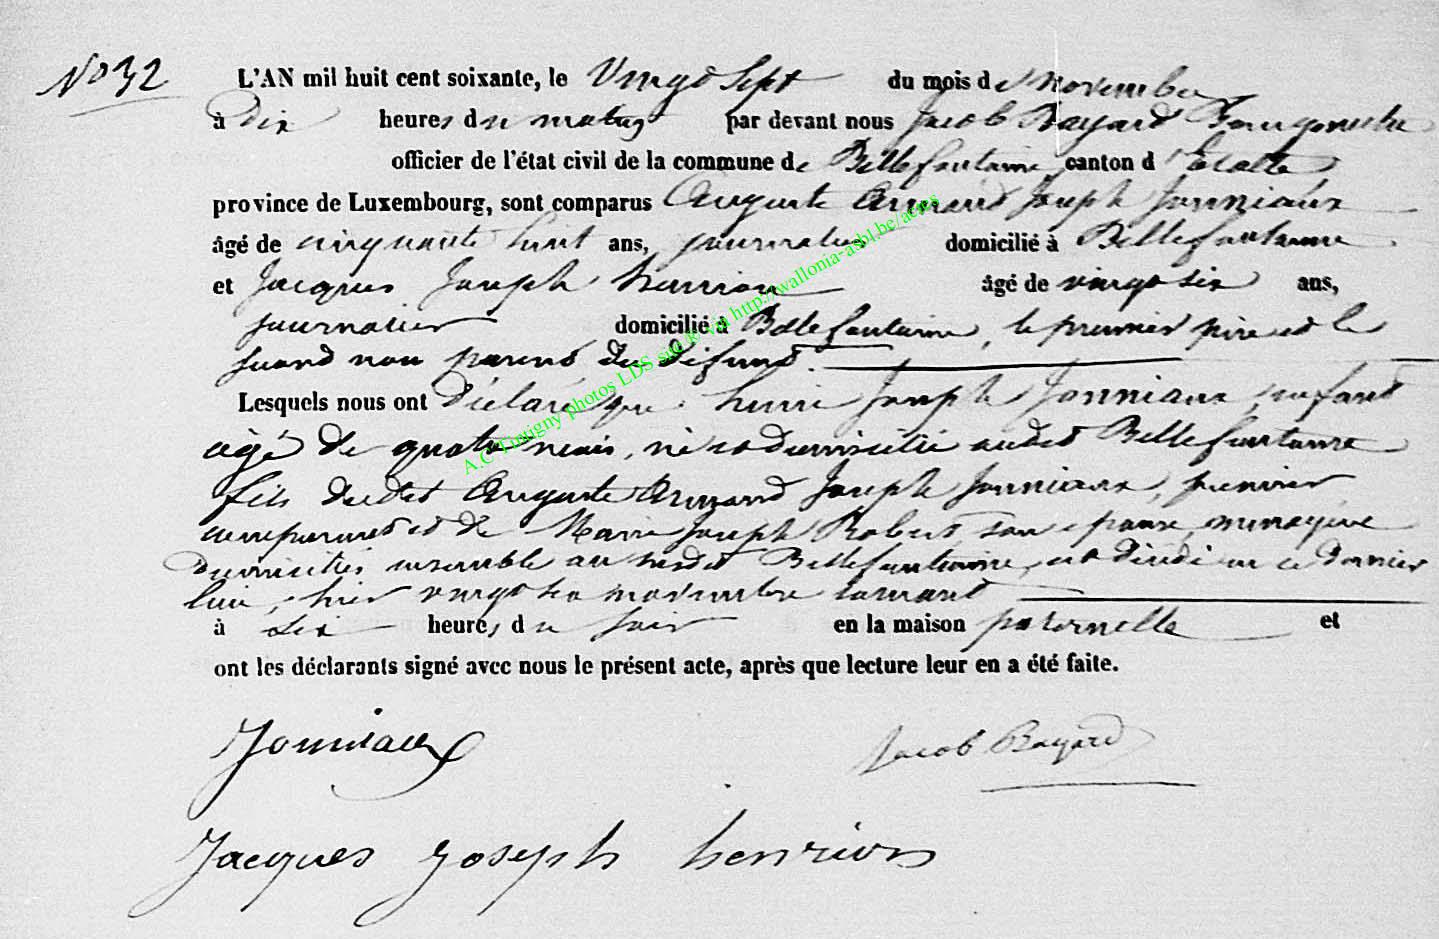 No 32
L'AN mil huit cent soixante, le Vingt Sept du mois de Novembre
à Dix heures du matin par devant nous Jacob Bayard Bourgmestre
officier de l'état civil de la commune de Bellefontaine canton d'Etalle
province de Luxembourg, sont comparus Auguste Armand Joseph Jonniaux
âgé de cinquante huit ans, journalier domicilié à Bellefontaine
et Jacques Joseph henrion âgé de vingt six ans,
journalier domicilié à Bellefontaine, le premier père et le
second non parent du défunt.
Lesquels nous ont Déclaré que henri Joseph Jonniaux, enfant
agé de quatre mois, né et domicilié audit Bellefontaine
fils dudit Auguste Armand Joseph Jonniaux, premier
comparant et de Marie Joseph Robert son epouse, menagère
domiciliés ensemble au susdit Bellefontaine, est décédé en ce dernier
lieu, hier vingt six novembre courant
à six heures du soir en la maison paternelle et
ont les déclarants signé avec nous le présent acte, après que lecture leur en a été faite.
Jonniaux Jacob Bayard
Jacques Joseph henrion
A.C Tintigny photos LDS sur K via http://wallonia-asbl.be/actes